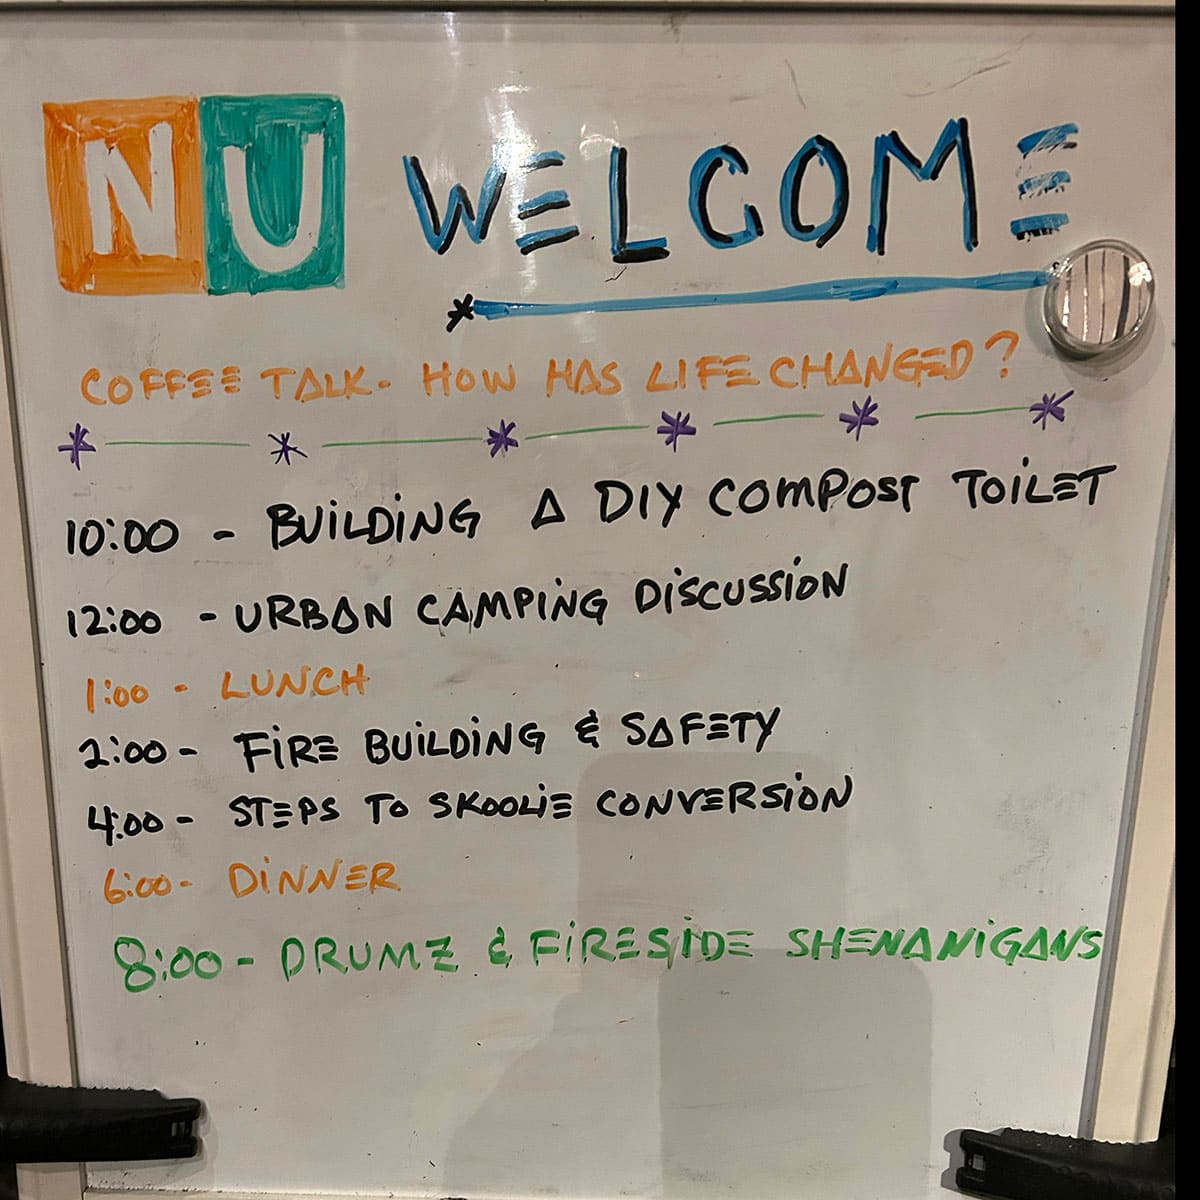 NU WELCOME
COFFEE TALK - HOW HAS LIFE CHANGED?
10:00 - BUILDING A DIY COMPOST TOILET
12:00 - URBAN CAMPING DISCUSSION
1:00 - LUNCH
2:00 - FIRE BUILDING & SAFETY
4:00 - STEPS TO SKOOLIE CONVERSION
6:00 - DINNER
8:00 - DRUMZ & FIRESIDE SHENANIGANS